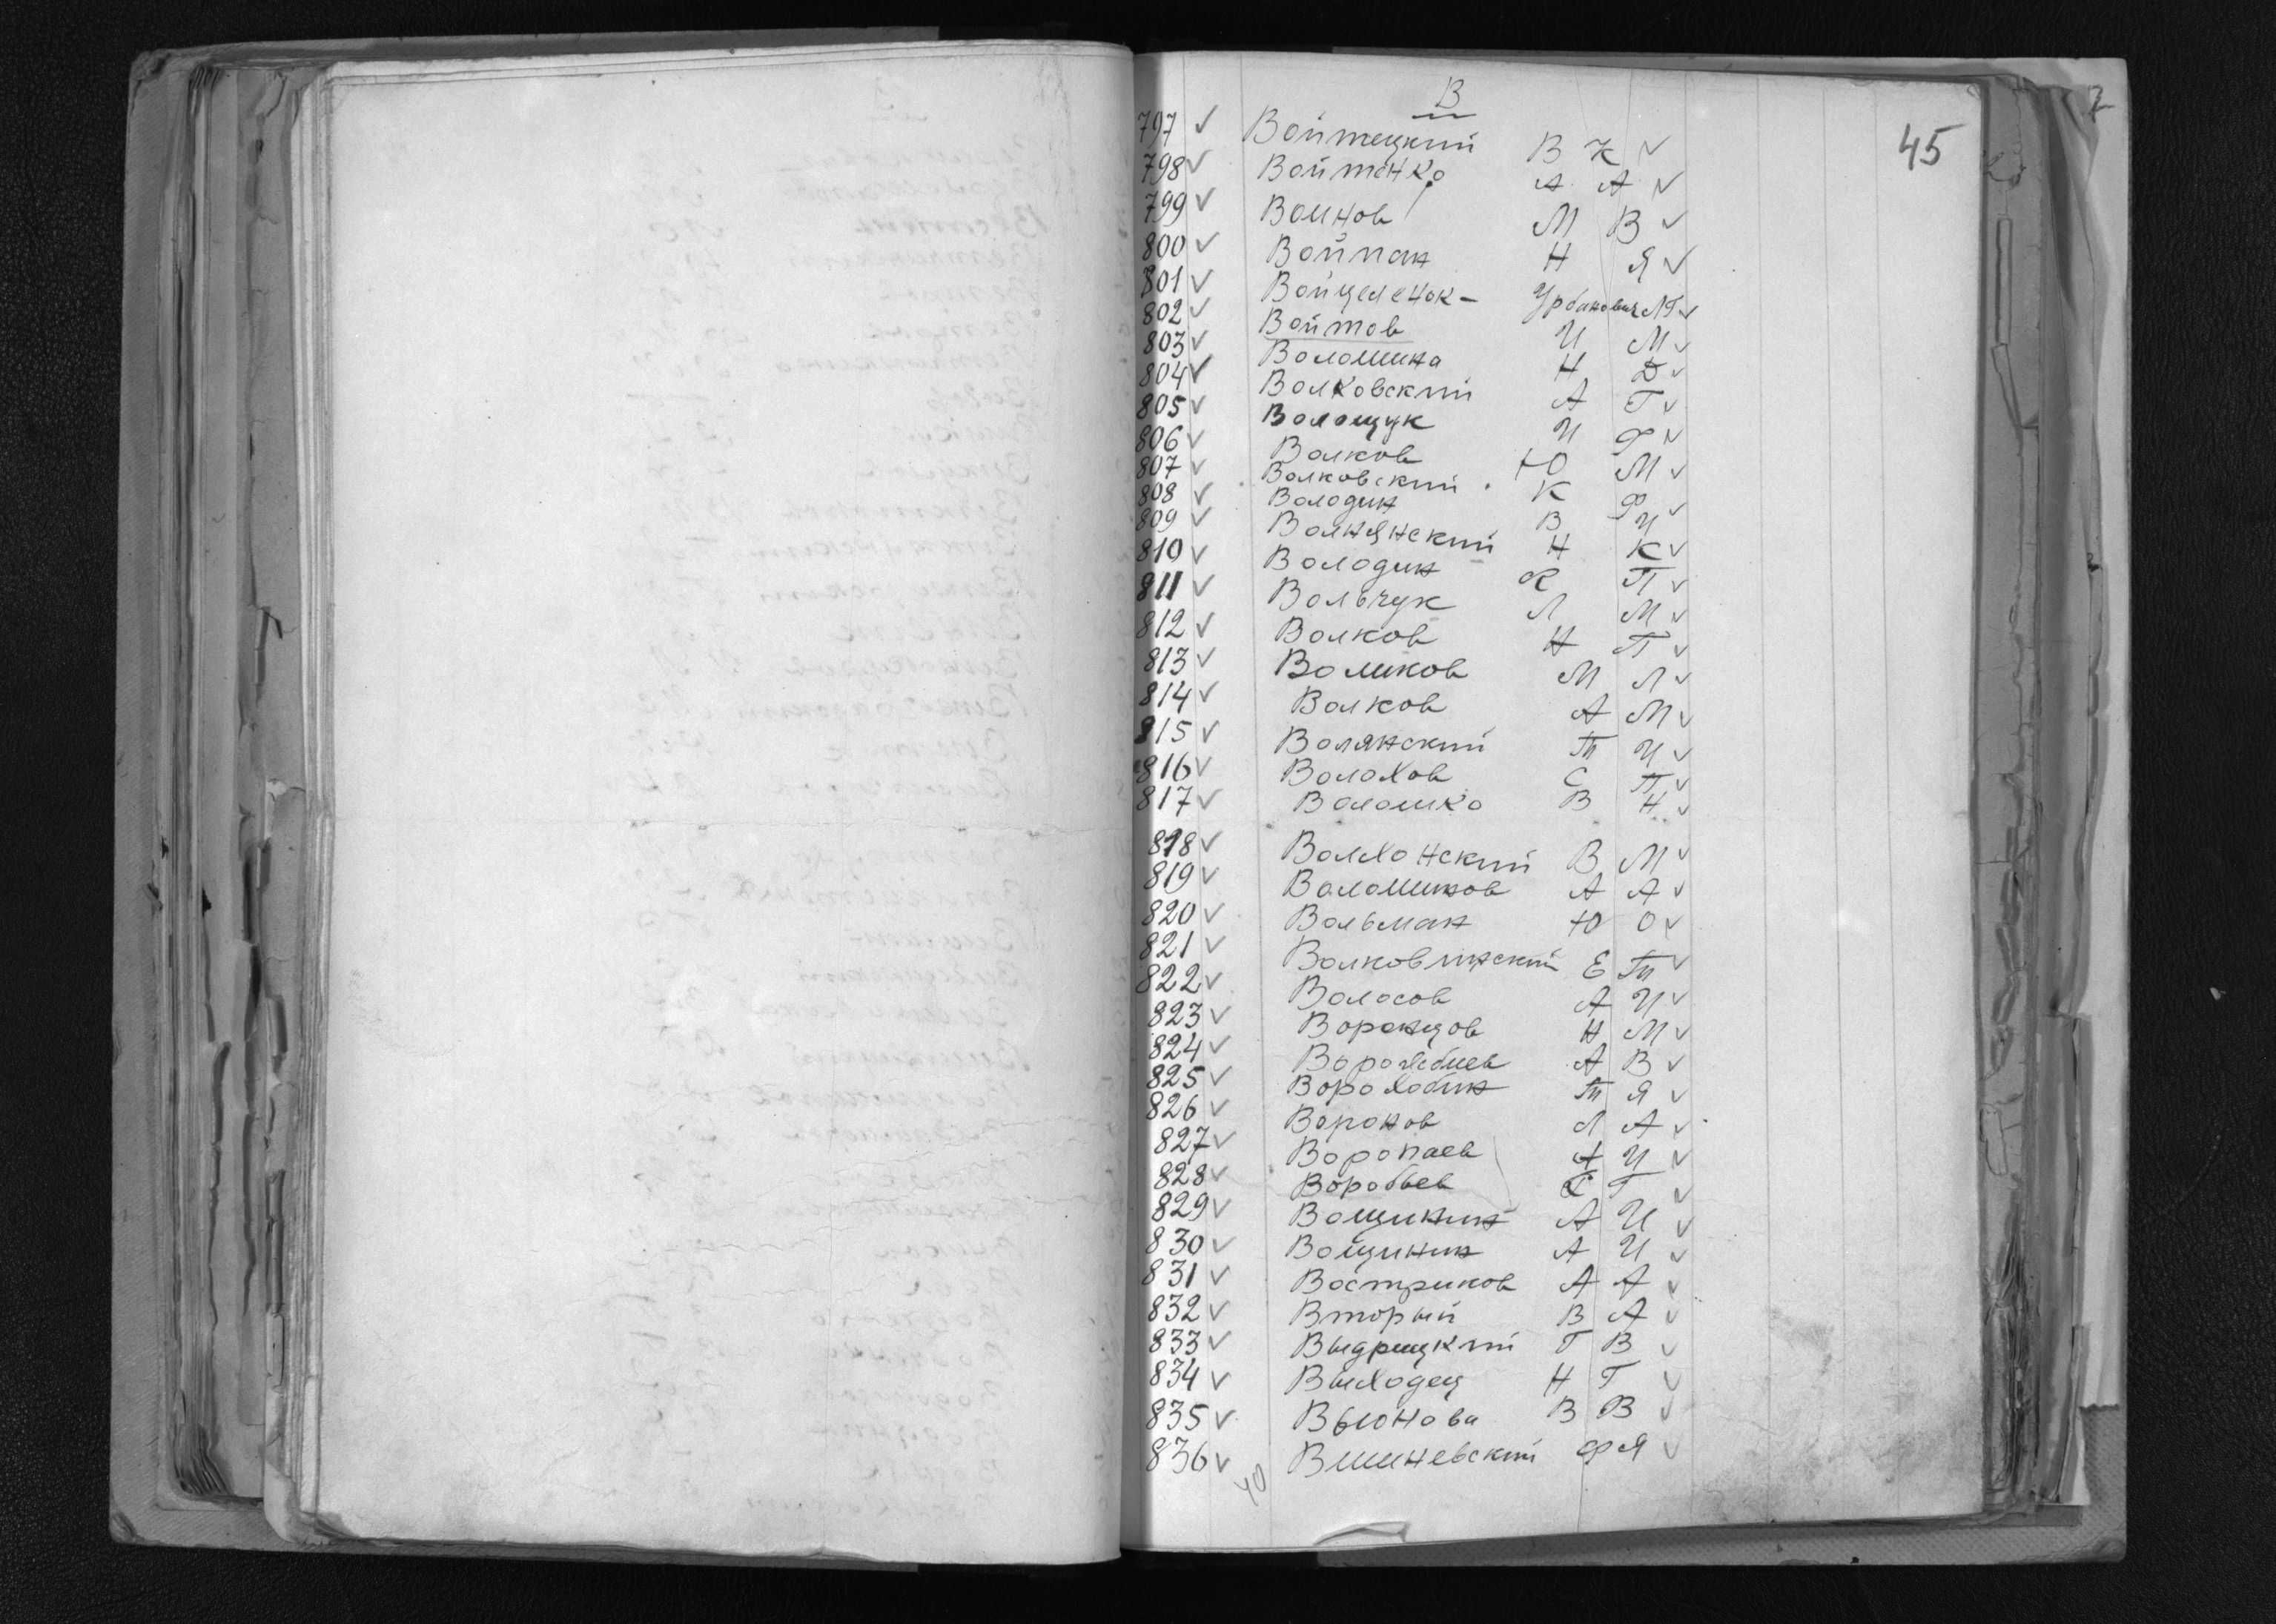 В
45
797 ✓ Войтецкий В К ✓
798 ✓ Войтенко А А ✓
799 ✓ Воинов М В ✓
800 ✓ Войпан Н Я ✓
801 ✓ Войцеленок - Урбанович М Г ✓
802 ✓ Войтов И М ✓
803 ✓ Волошина Н Д ✓
804 ✓ Волковский А Г ✓
805 ✓ Волощук И Ф ✓
806 ✓ Волков Ю М ✓
807 ✓ Волковский К Ф ✓
808 ✓ Володин В И
809 ✓ Волнянский Н К ✓
810 ✓ Володин К П ✓
811 ✓ Вольчук Л М ✓
812 ✓ Волков Н П ✓
813 ✓ Воликов М Л ✓
814 ✓ Волков А М ✓
815 ✓ Волянский Т И ✓
816 ✓ Волохов С П ✓
817 ✓ Волошко В Н ✓
818 ✓ Волхонский В М ✓
819 ✓ Воломиков А А ✓
820 ✓ Вольман Ю О ✓
821 ✓ Волковинский Е Т ✓
822 ✓ Волосов А И ✓
823 ✓ Воронцов Н М ✓
824 ✓ Ворожбиев А В ✓
825 ✓ Ворохобин Т Я ✓
826 ✓ Воронов Л А ✓
827 ✓ Воропаев А И ✓
828 ✓ Воробьев Г ✓
829 ✓ Вощинин А И ✓
830 ✓ Вощинин А И ✓
831 ✓ Востриков А А ✓
832 ✓ Вторый В А ✓
833 ✓ Выдрицкий Г В ✓
834 ✓ Выходец Н Г ✓
835 ✓ Вьюнова В В ✓
836 ✓ Вишневский Ф Я ✓
40